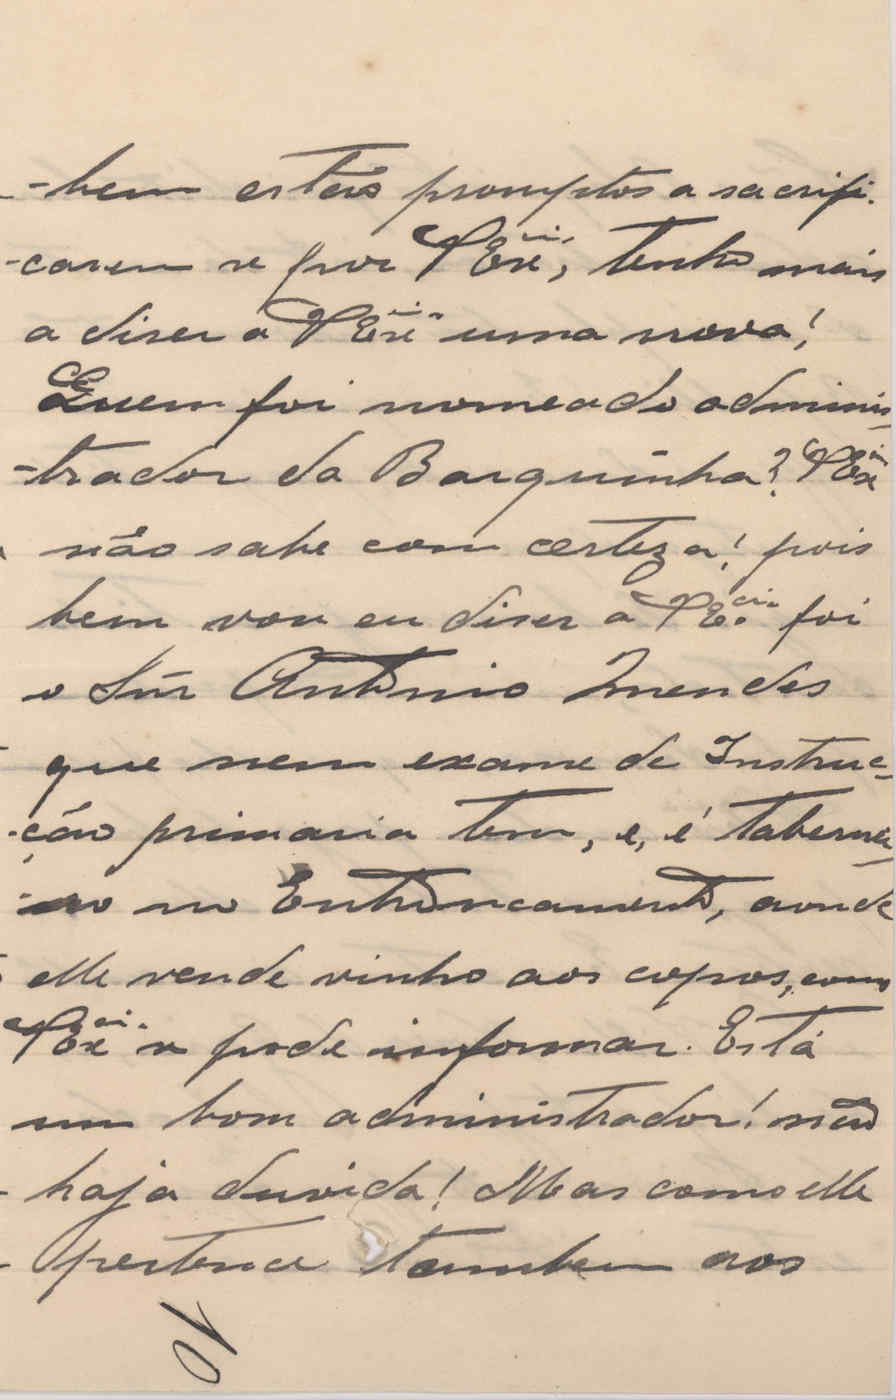 -bem estão promptos a sacrifi-
-carem se por V Exᶜⁱᵃ, tenho mais
a diser a V Exᶜⁱᵃ uma nova!
Quem foi nomeado adminis-
-trador da Barquinha? V Exᶜⁱᵃ
não sabe com certeza! pois
bem vou eu diser a V E.ᶜⁱᵃ foi
o Snr Antonio Mendes
que nem exame de Instruc-
-ção primaria tem, e, é taberne-
-iro no Entroncamento, aonde
elle vende vinho aos copos, como
V Exᶜⁱᵃ se pode informar. Está
um bom administrador! não
haja duvida! Mas como elle
pertence tambem aos
10